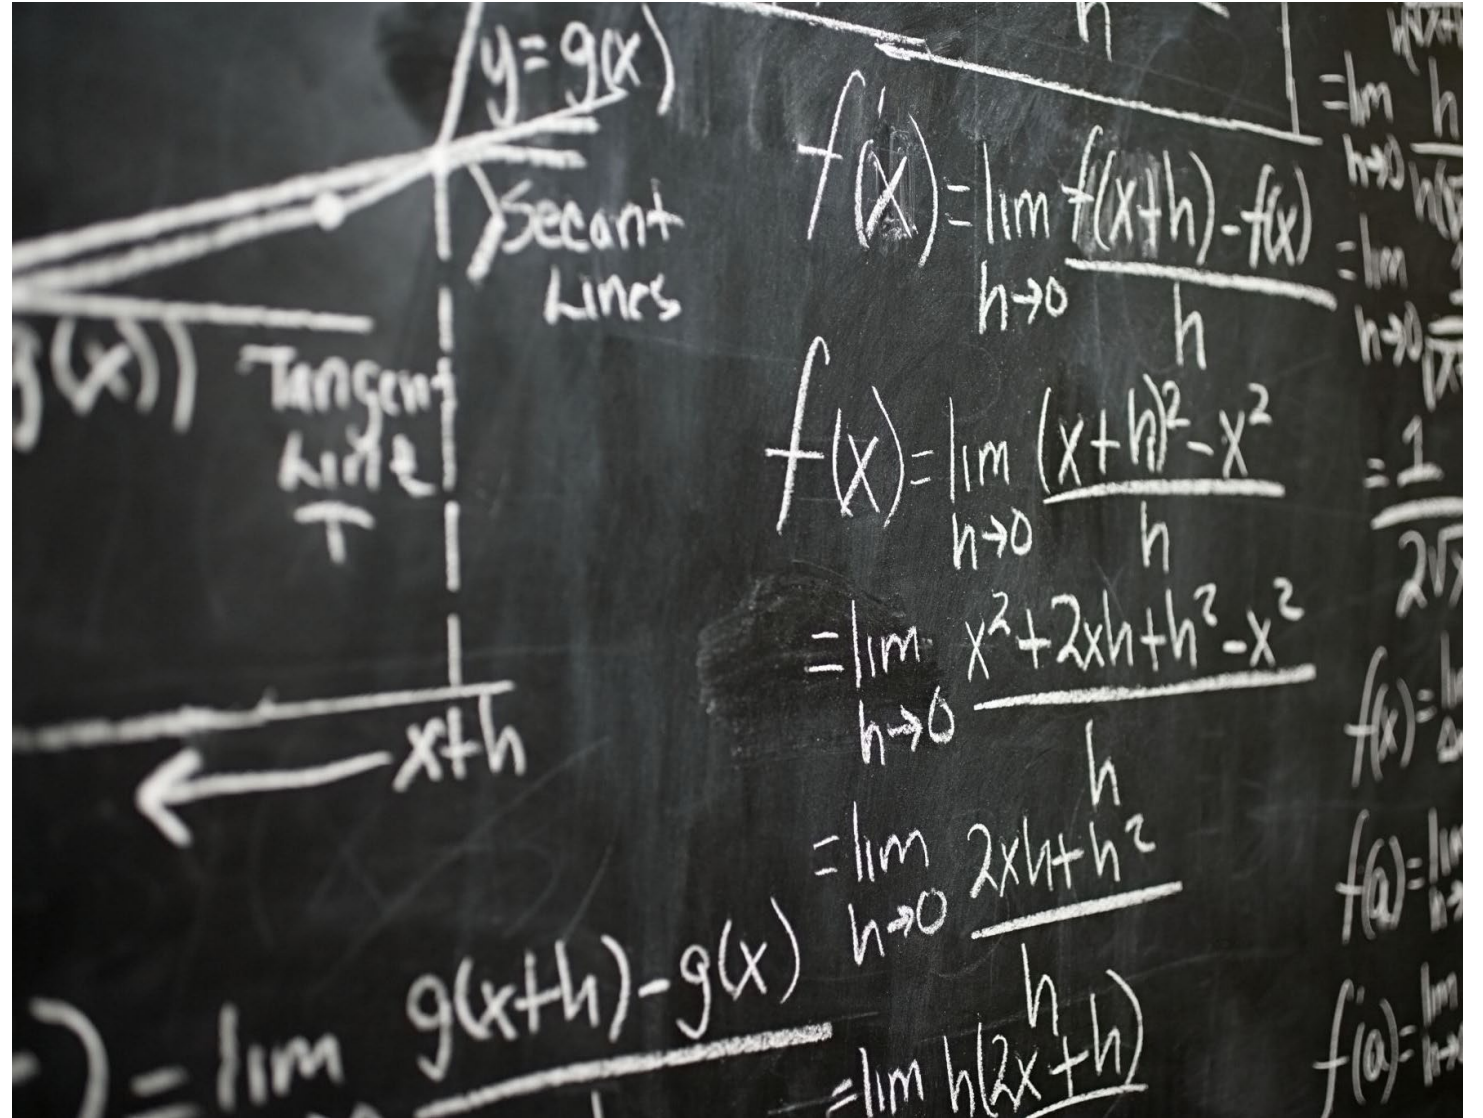 y = g(x)
Secant
Lines
g(x))
Tangent
Line
T
x+h
) = lim g(x+h) - g(x)
h
f'(x) = lim f(x+h) - f(x)
h→0 h
f(x) = lim (x+h)² - x²
h→0 h
= lim x² + 2xh + h² - x²
h→0 h
= lim 2xh + h²
h→0 h
= lim h(2x+h)
= lim h
h→0
= lim
h→0
= 1
2√x
f(x) = 
f(a) = lim
f'(a) = lim